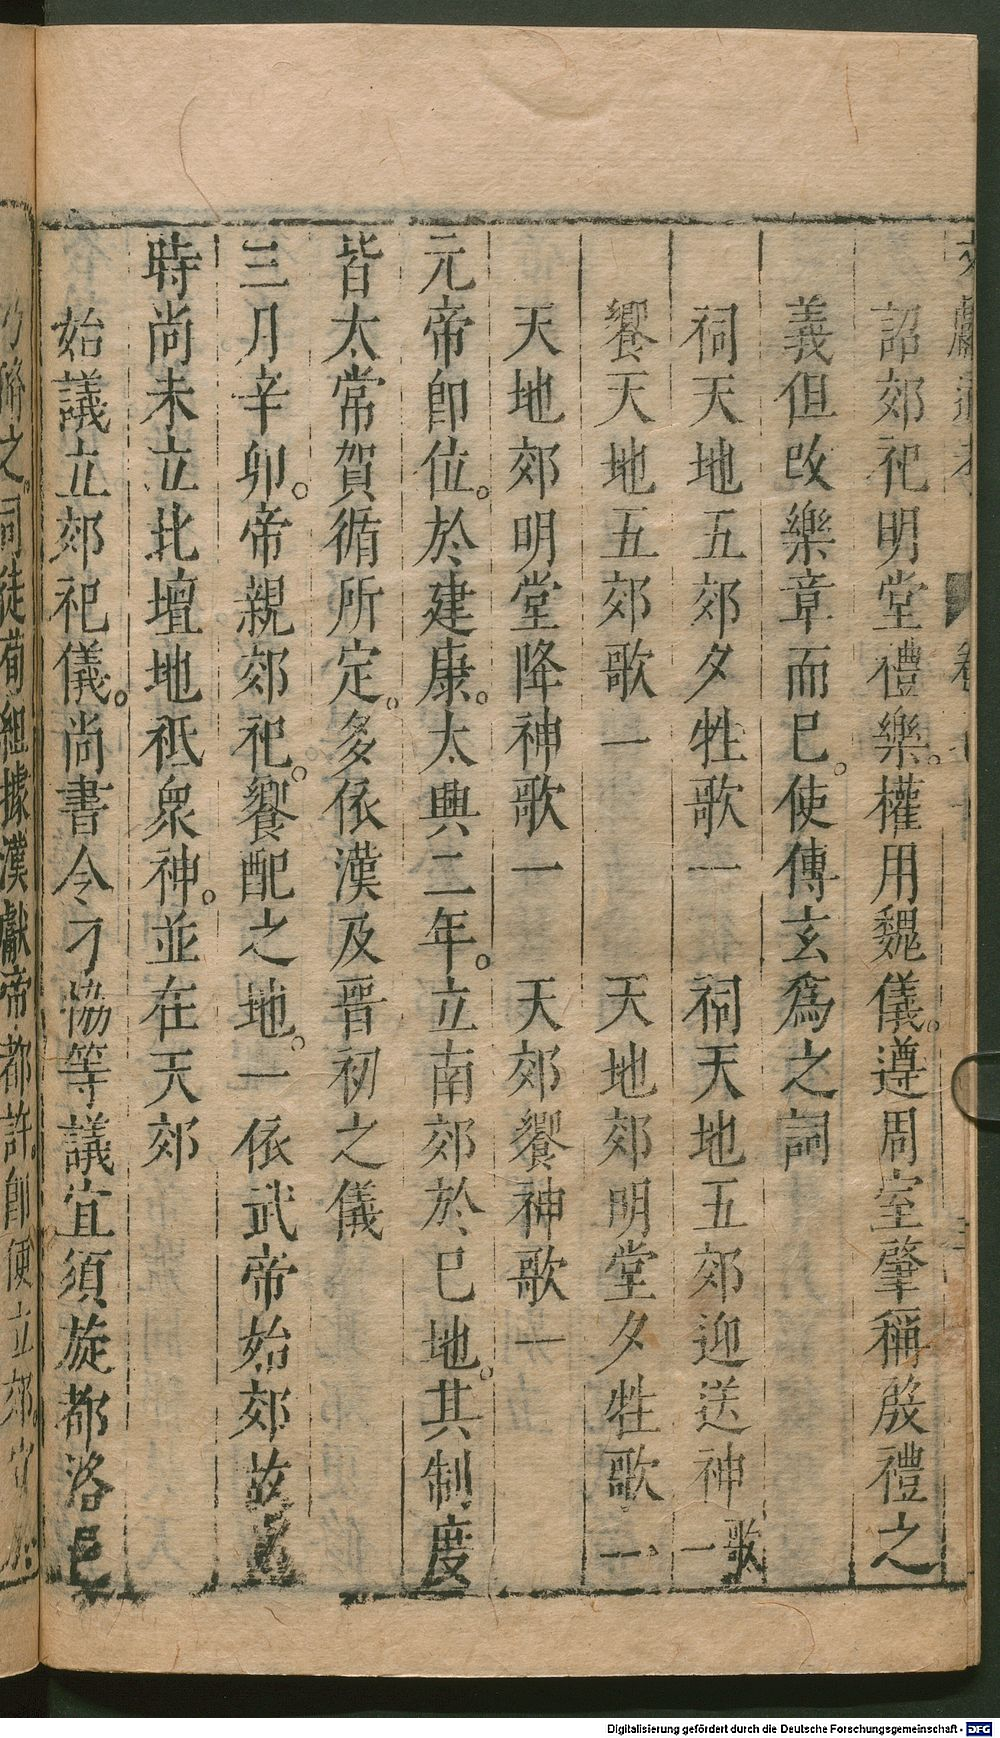 詔郊祀明堂禮樂。權用魏儀。遵周室肇稱殷禮之
義但改樂章而已。使傳玄爲之詞
祠天地五郊夕牲歌一　祠天地五郊迎送神歌一
饗天地五郊歌一　天地郊明堂夕牲歌一
天地郊明堂降神歌一　天郊饗神歌一
元帝卽位。於建康。太興二年。立南郊於巳地。其制度
皆太常賀循所定。多依漢及晉初之儀
三月辛卯。帝親郊祀。饗配之地。一依武帝始郊故
時尚未立北壇地祇衆神。並在天郊
始議立郊祀儀。尚書令刁協等議宜須旋都洛邑
乃脩之。司徒荀組據漢獻帝都許。卽便立郊。
Digitalisierung gefördert durch die Deutsche Forschungsgemeinschaft - DFG